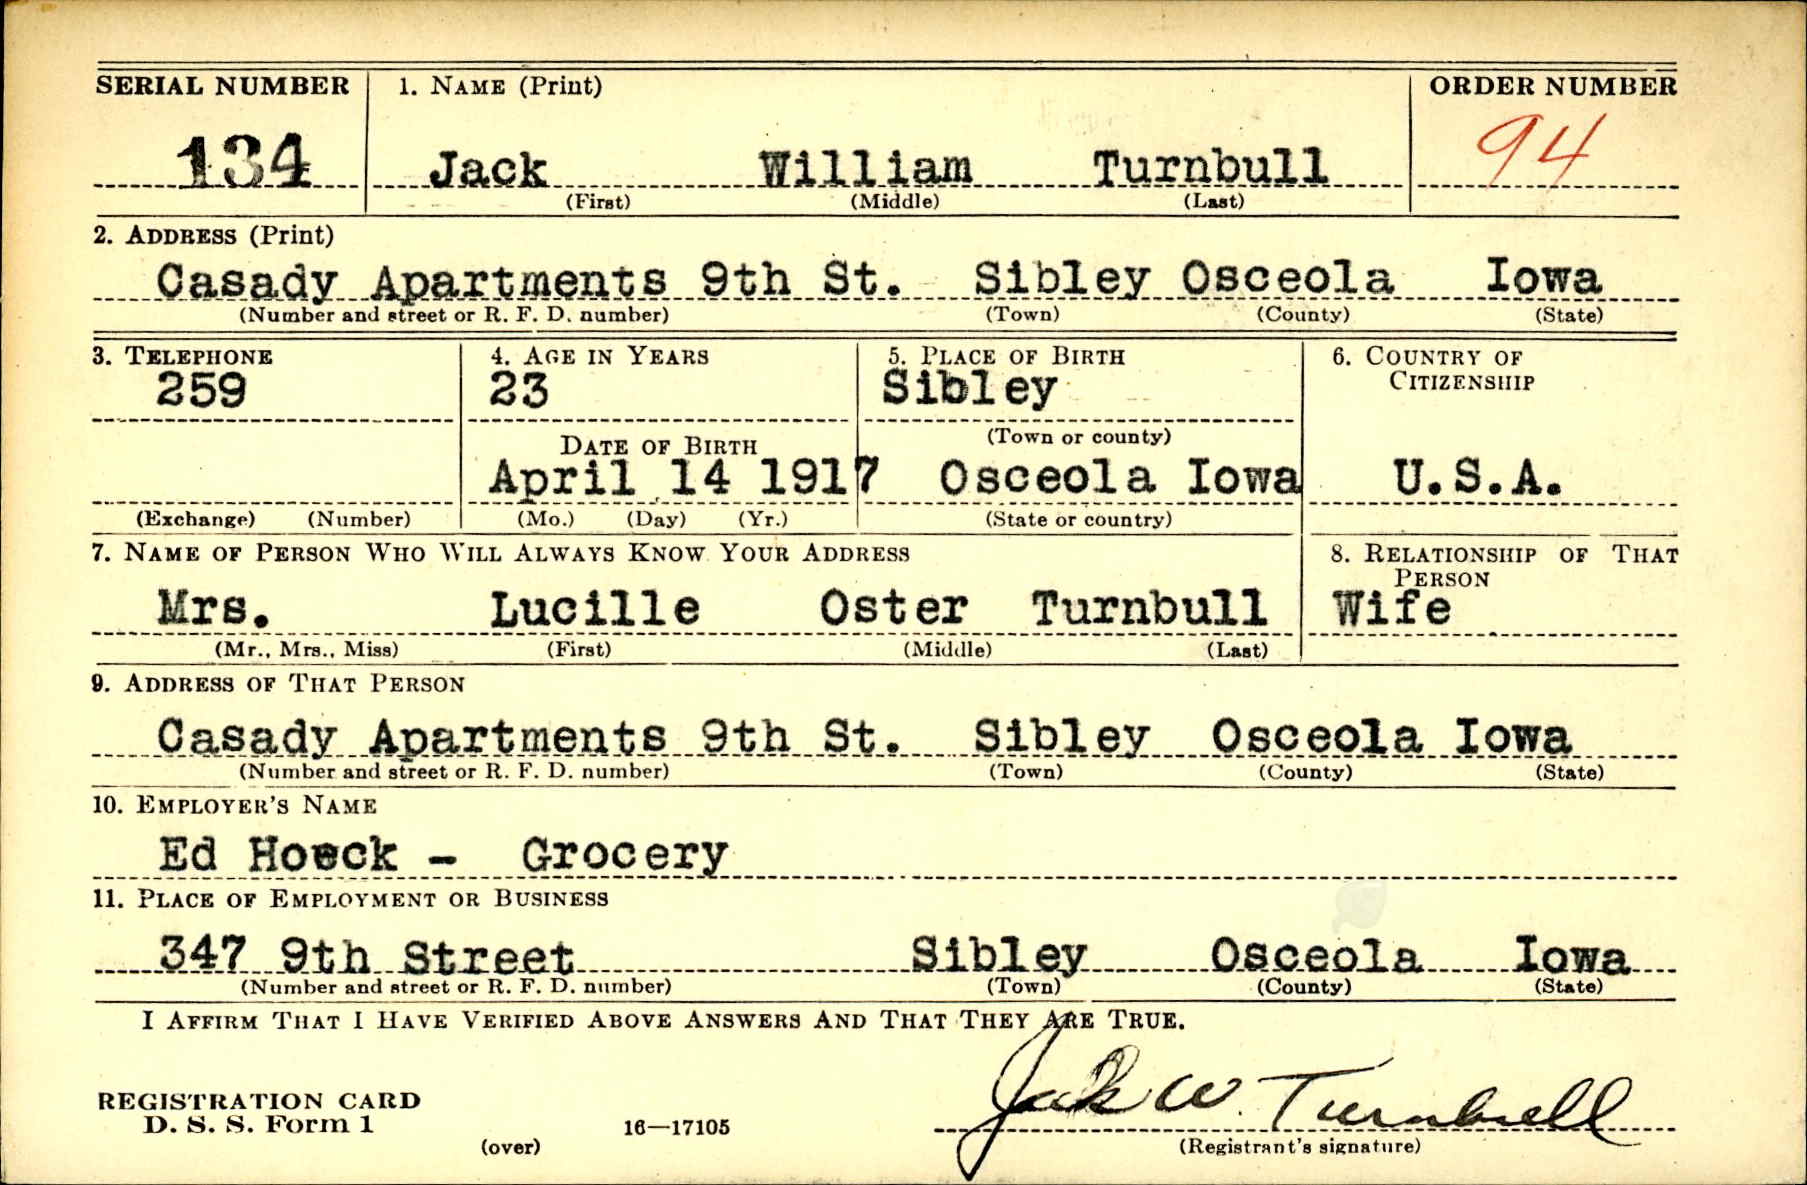 SERIAL NUMBER 1. NAME (Print) ORDER NUMBER
134 Jack William Turnbull 94
(First) (Middle) (Last)
2. ADDRESS (Print)
Casady Apartments 9th St. Sibley Osceola Iowa
(Number and street or R. F. D. number) (Town) (County) (State)
3. TELEPHONE 4. AGE IN YEARS 5. PLACE OF BIRTH 6. COUNTRY OF
CITIZENSHIP
259 23 Sibley
(Town or county)
DATE OF BIRTH
April 14 1917 Osceola Iowa U.S.A.
(Exchange) (Number) (Mo.) (Day) (Yr.) (State or country)
7. NAME OF PERSON WHO WILL ALWAYS KNOW YOUR ADDRESS 8. RELATIONSHIP OF THAT
PERSON
Mrs. Lucille Oster Turnbull Wife
(Mr., Mrs., Miss) (First) (Middle) (Last)
9. ADDRESS OF THAT PERSON
Casady Apartments 9th St. Sibley Osceola Iowa
(Number and street or R. F. D. number) (Town) (County) (State)
10. EMPLOYER'S NAME
Ed Hoeck - Grocery
11. PLACE OF EMPLOYMENT OR BUSINESS
347 9th Street Sibley Osceola Iowa
(Number and street or R. F. D. number) (Town) (County) (State)
I AFFIRM THAT I HAVE VERIFIED ABOVE ANSWERS AND THAT THEY ARE TRUE.
REGISTRATION CARD
D. S. S. Form 1 Jack W. Turnbull
(over) 16—17105 (Registrant's signature)